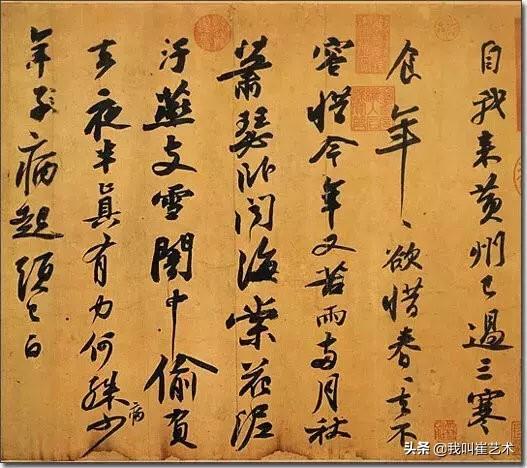 自我来黄州已過三寒
食年〻欲惜春〻去不
容惜今年又苦雨兩月秋
蕭瑟卧聞海棠花泥
汙燕支雪闇中偷負
去夜半真有力何殊少
病
年子病起頭已白
头条 @我叫崔艺术